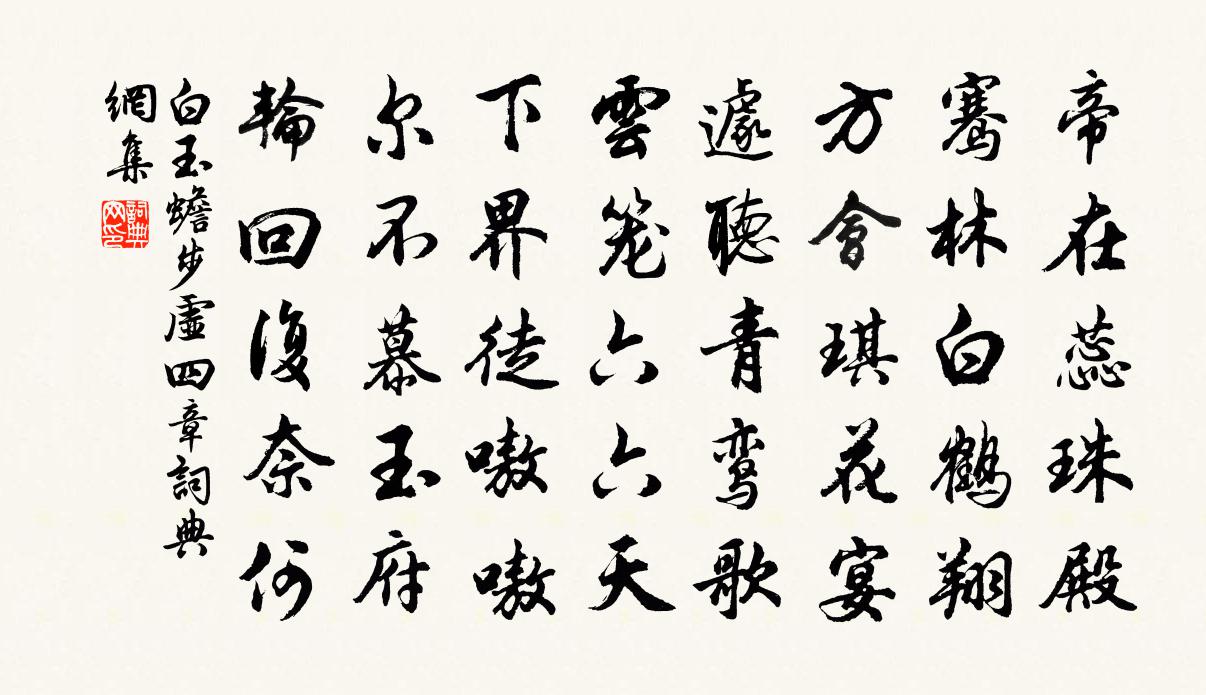 帝在蕊珠殿
骞林白鶴翔
方會琪花宴
遽聽青鸾歌
雲笼六六天
下界徒嗷嗷
尔不慕玉府
輪回復奈何
白玉蟾步虛四章詞典
網集
詞典網印